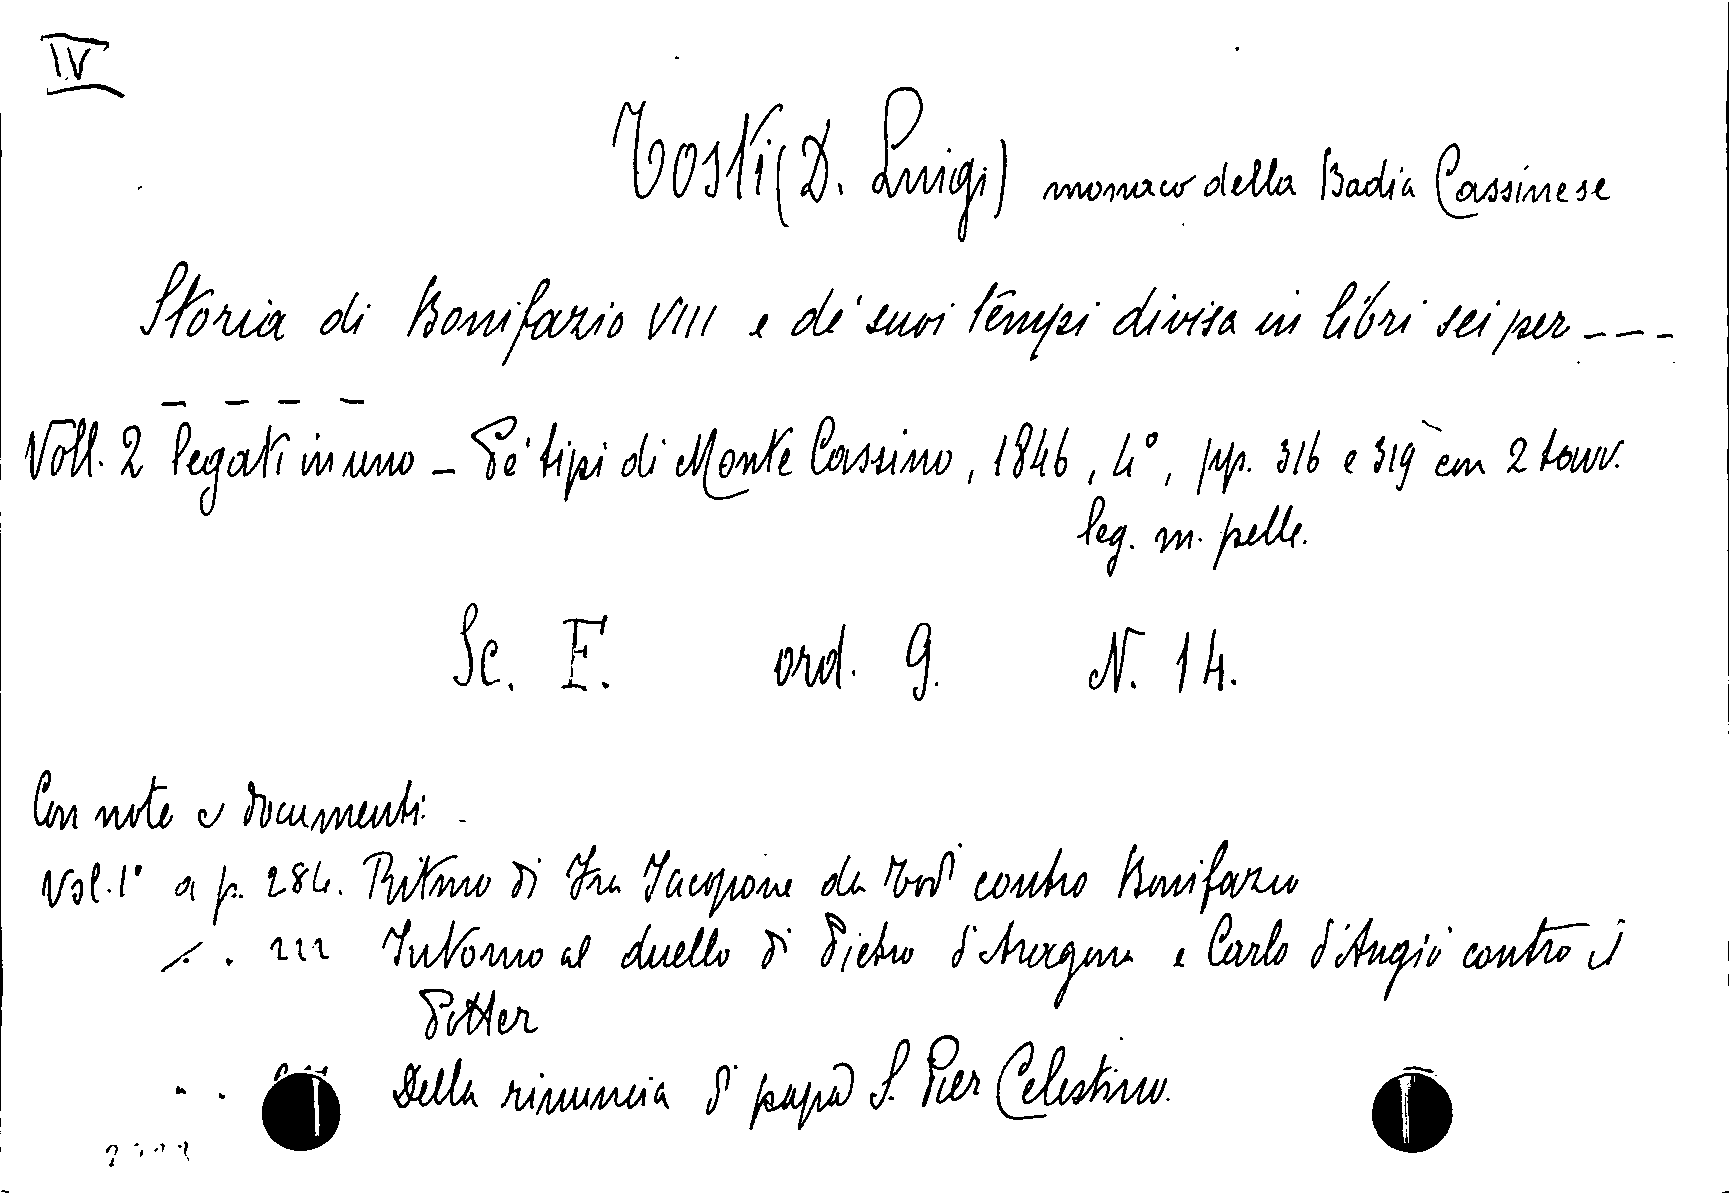 IV
Tosti (D. Luigi) monaco della Badia Cassinese
Storia di Bonifazio VIII e de' suoi tempi divisa in libri sei per ----
----
Voll. 2 legati in uno - Pe' tipi di Monte Cassino, 1846, 4°, pp. 316 e 319 con 2 tavv.
leg. m. pelle.
Sc. E. ord. 9. N. 14.
Con note e documenti.
Vol. 1° a p. 284. Ritmo di Fra Jacopone da Todi contro Bonifazio
" . 222 Intorno al duello di Pietro d'Aragona e Carlo d'Angiò contro il
Potter
" . Della rinuncia di papa S. Pier Celestino.